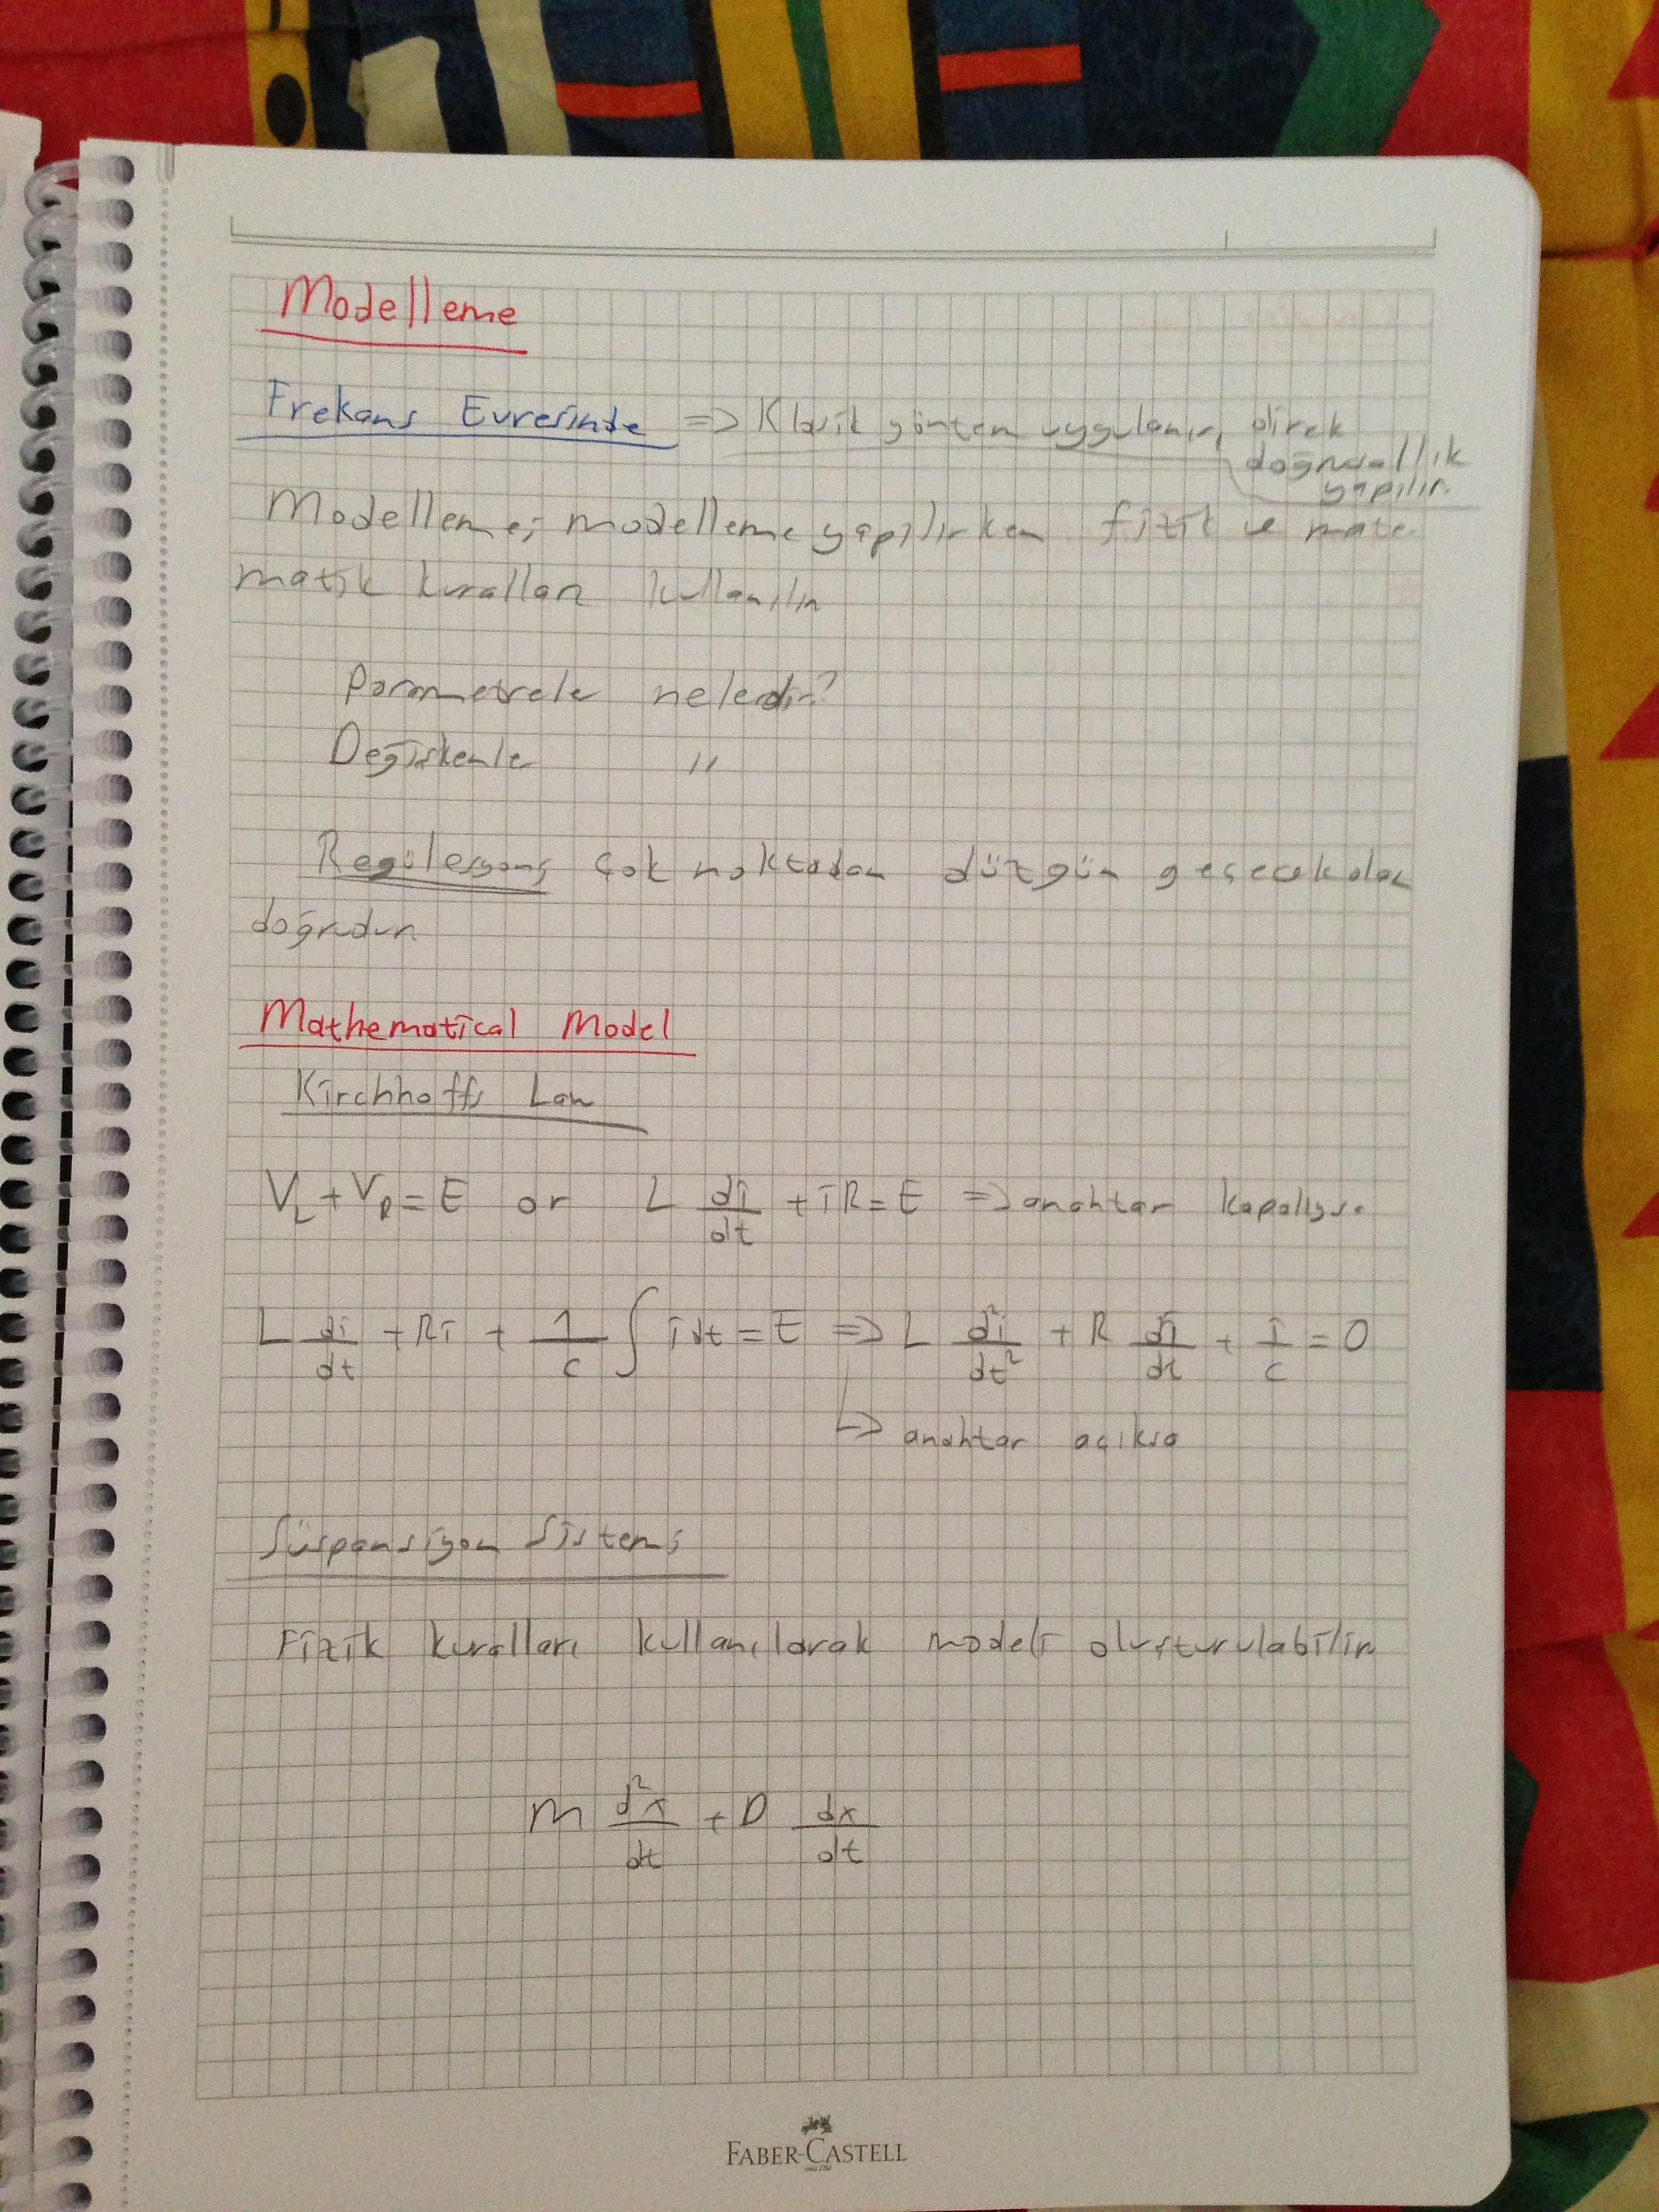 Modelleme
Frekans Evresinde => Klasik yöntem uygulanır, direk
doğrusallık
yapılır.
Modelleme; modelleme yapılırken fizik ve mate-
matik kuralları kullanılır
Parametrele nelerdir?
Değişkenle "
Regülasyon; çok noktadan düzgün geçecek olan
doğrudur.
Mathematical Model
Kirchhoffs Law
V_L + V_R = E or L di/dt + iR = E => anahtar kapalıysa
L di/dt + Ri + 1/c ∫ i dt = E => L d²i/dt² + R di/dt + i/c = 0
↳> anahtar açıksa
Süspansiyon Sistemi
Fizik kuralları kullanılarak modeli oluşturulabilir
m d²x/dt + D dx/dt
FABER-CASTELL